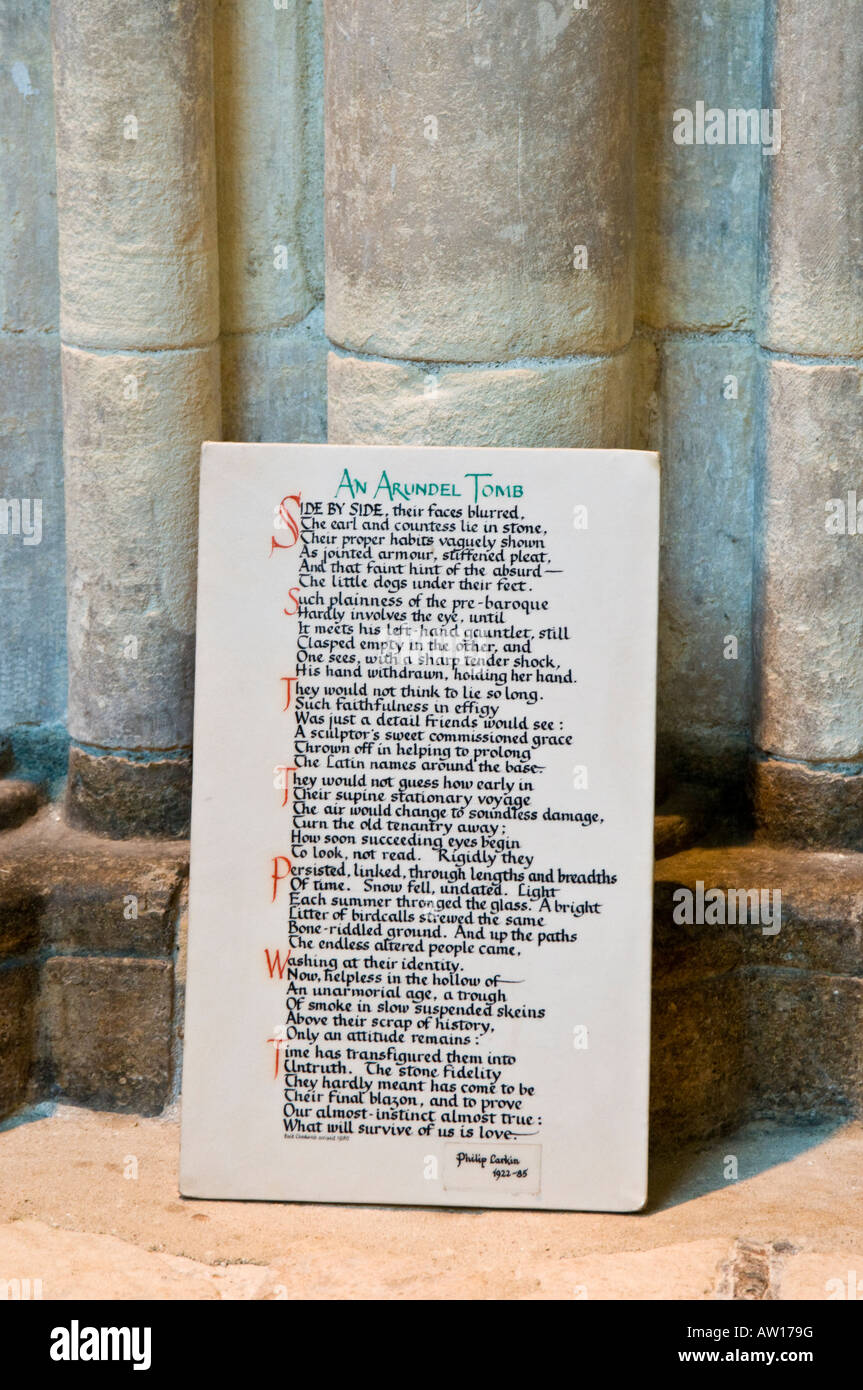 AN ARUNDEL TOMB
SIDE BY SIDE, their faces blurred,
The earl and countess lie in stone,
Their proper habits vaguely shown
As jointed armour, stiffened pleat,
And that faint hint of the absurd—
The little dogs under their feet.
Such plainness of the pre-baroque
Hardly involves the eye, until
It meets his left-hand gauntlet, still
Clasped empty in the other, and
One sees, with a sharp tender shock,
His hand withdrawn, holding her hand.
They would not think to lie so long.
Such faithfulness in effigy
Was just a detail friends would see:
A sculptor's sweet commissioned grace
Thrown off in helping to prolong
The Latin names around the base.
They would not guess how early in
Their supine stationary voyage
The air would change to soundless damage,
Turn the old tenantry away;
How soon succeeding eyes begin
To look, not read. Rigidly they
Persisted, linked, through lengths and breadths
Of time. Snow fell, undated. Light
Each summer thronged the glass. A bright
Litter of birdcalls strewed the same
Bone-riddled ground. And up the paths
The endless altered people came,
Washing at their identity.
Now, helpless in the hollow of
An unarmorial age, a trough
Of smoke in slow suspended skeins
Above their scrap of history,
Only an attitude remains:
Time has transfigured them into
Untruth. The stone fidelity
They hardly meant has come to be
Their final blazon, and to prove
Our almost-instinct almost true:
What will survive of us is love.
Philip Larkin
1922-85
alamy
Image ID: AW179G
www.alamy.com